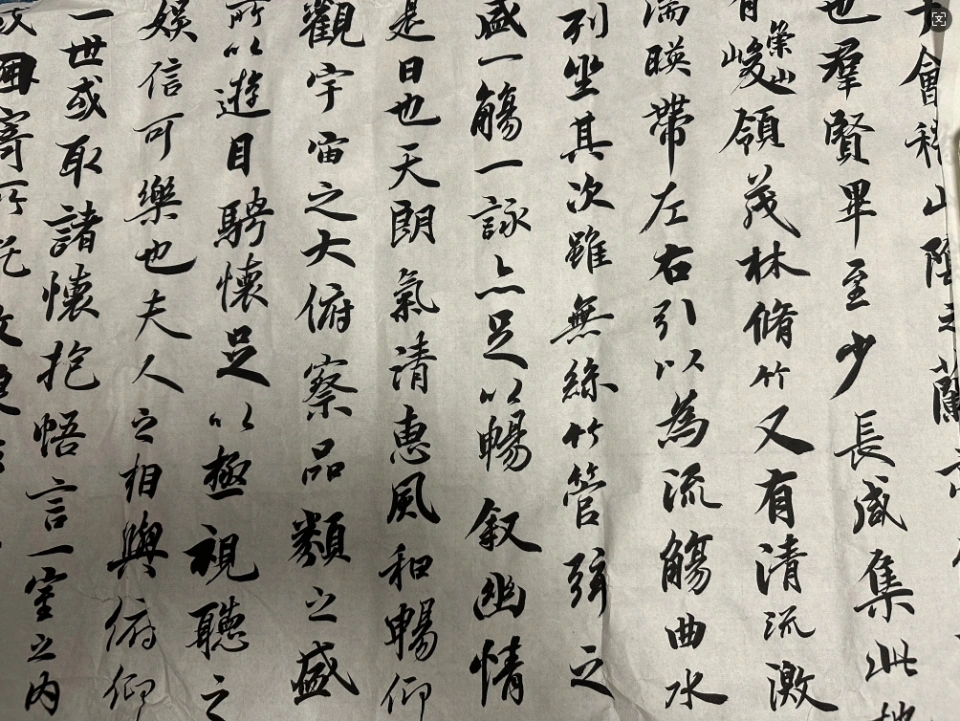 會稽山陰之蘭
也羣賢畢至少長咸集此地
有崇山峻領茂林脩竹又有清流激
湍暎帶左右引以為流觴曲水
列坐其次雖無絲竹管弦之
盛一觴一詠亦足以暢叙幽情
是日也天朗氣清惠風和暢仰
觀宇宙之大俯察品類之盛
所以遊目騁懷足以極視聽之
娛信可樂也夫人之相與俯仰
一世或取諸懷抱悟言一室之内
或因寄所託放